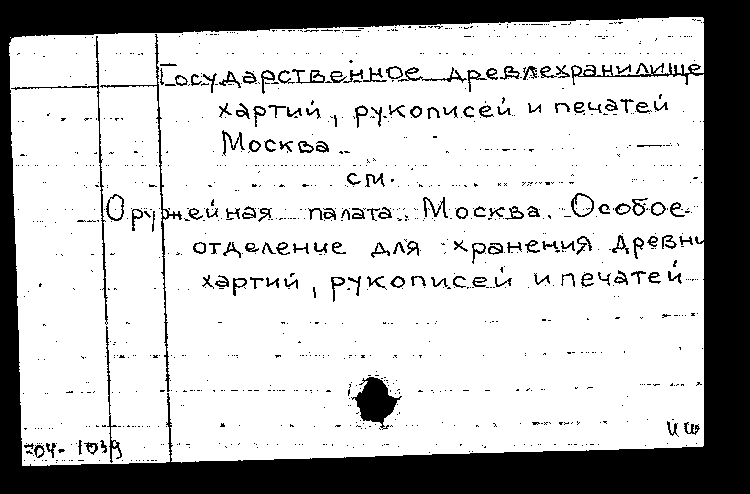 Государственное древлехранилище
хартий, рукописей и печатей
Москва.
см.
Оружейная палата. Москва. Особое
отделение для хранения древни
хартий, рукописей и печатей
704-1039